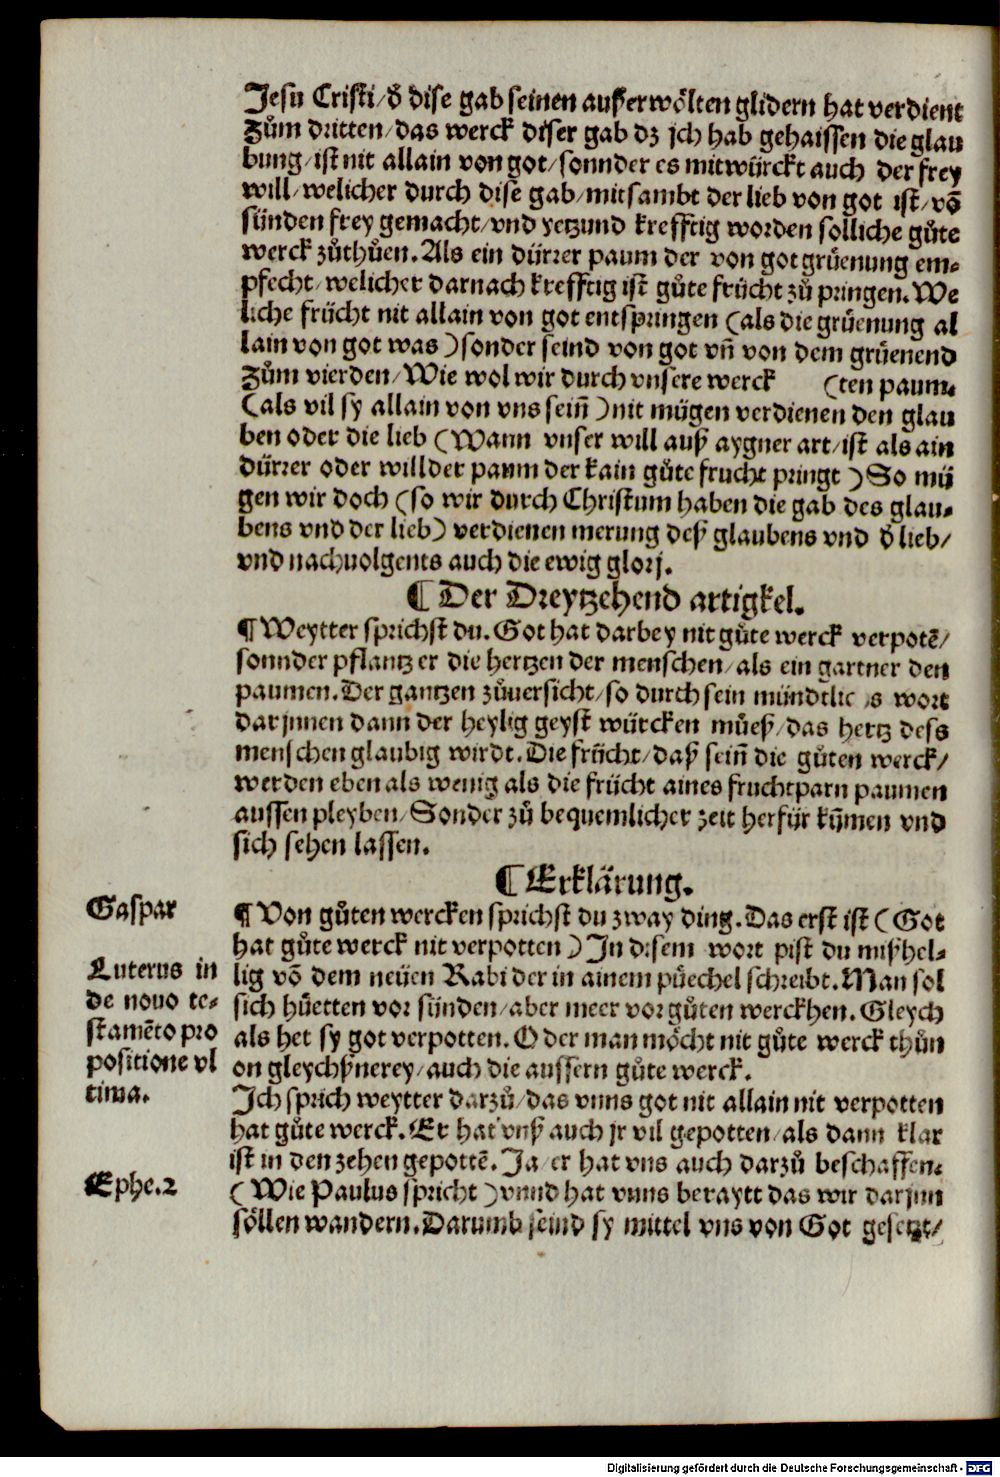 Jesu Cristi/ď dise gab seinen ausserwölten glidern hat verdient
Zům dritten/das werck diser gab dz jch hab gehaissen die glau
bung/ist nit allain von got/sonnder es mitwürckt auch der frey
will/welicher durch dise gab/mitsambt der lieb von got ist/võ
sünden frey gemacht/vnd yetzund krefftig worden solliche gůte
werck zůthůen. Als ein dürrer paum der von got grüenung em⸗
pfecht/welicher darnach krefftig ist gůte frücht zů pringen. We
liche frücht nit allain von got entspringen (als die grüenung al
lain von got was) sonder seind von got vñ von dem grüenend
Zům vierden/Wie wol wir durch vnsere werck (ten paum.
(als vil sy allain von vns seiñ) nit mügen verdienen den glau
ben oder die lieb (Wann vnser will auß aygner art/ist als ain
dürrer oder willder paum der kain gůte frucht pringt) So mü
gen wir doch (so wir durch Christum haben die gab des glau⸗
bens vnd der lieb) verdienen merung deß glaubens vnd ď lieb/
vnd nachuolgents auch die ewig glorj.
¶ Der Dreytzehend artigkel.
¶ Weytter sprichst du. Got hat darbey nit gůte werck verpotẽ/
sonnder pflantz er die hertzen der menschen/als ein gartner den
paumen. Der gantzen zůuersicht/so durch sein mündtlic s wort
darjnnen dann der heylig geyst würcken můeß/das hertz dess
menschen glaubig wirdt. Die frücht/daß seiñ die gůten werck/
werden eben als wenig als die frücht aines fruchtparn paumen
aussen pleyben/Sonder zů bequemlicher zeit herfür kum̃en vnd
sich sehen lassen.
¶ Erklärung.
Gaspar
¶ Von gůten wercken sprichst du zway ding. Das erst ist (Got
hat gůte werck nit verpotten) In disem wort pist du mißhel⸗
Luterus in
de nouo te⸗
stamẽto pro
positione vl
tima.
lig võ dem neüen Rabi der in ainem püechel schreibt. Man sol
sich hüetten vor sünden/aber meer vor gůten werckhen. Gleych
als het sy got verpotten. Oder man möcht nit gůte werck thůn
on gleychßnerey/auch die aussern gůte werck.
Ich sprich weytter darzů/das vnns got nit allain nit verpotten
hat gůte werck. Er hat vnß auch jr vil gepotten/als dann klar
ist in den zehen gepottẽ. Ja/er hat vns auch darzů beschaffen.
Ephe. 2
(Wie Paulus spricht) vnnd hat vnns beraytt das wir darjnn
söllen wandern. Darumb seind sy mittel vns von Got gesetzt/
Digitalisierung gefördert durch die Deutsche Forschungsgemeinschaft - DFG